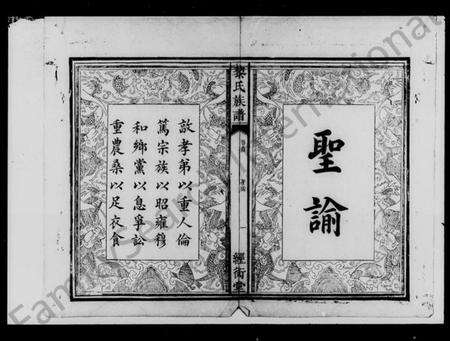 聖諭
黎氏族譜
經術堂
敦孝弟以重人倫
篤宗族以昭雍穆
和鄉黨以息爭訟
重農桑以足衣食
FamilySearch International